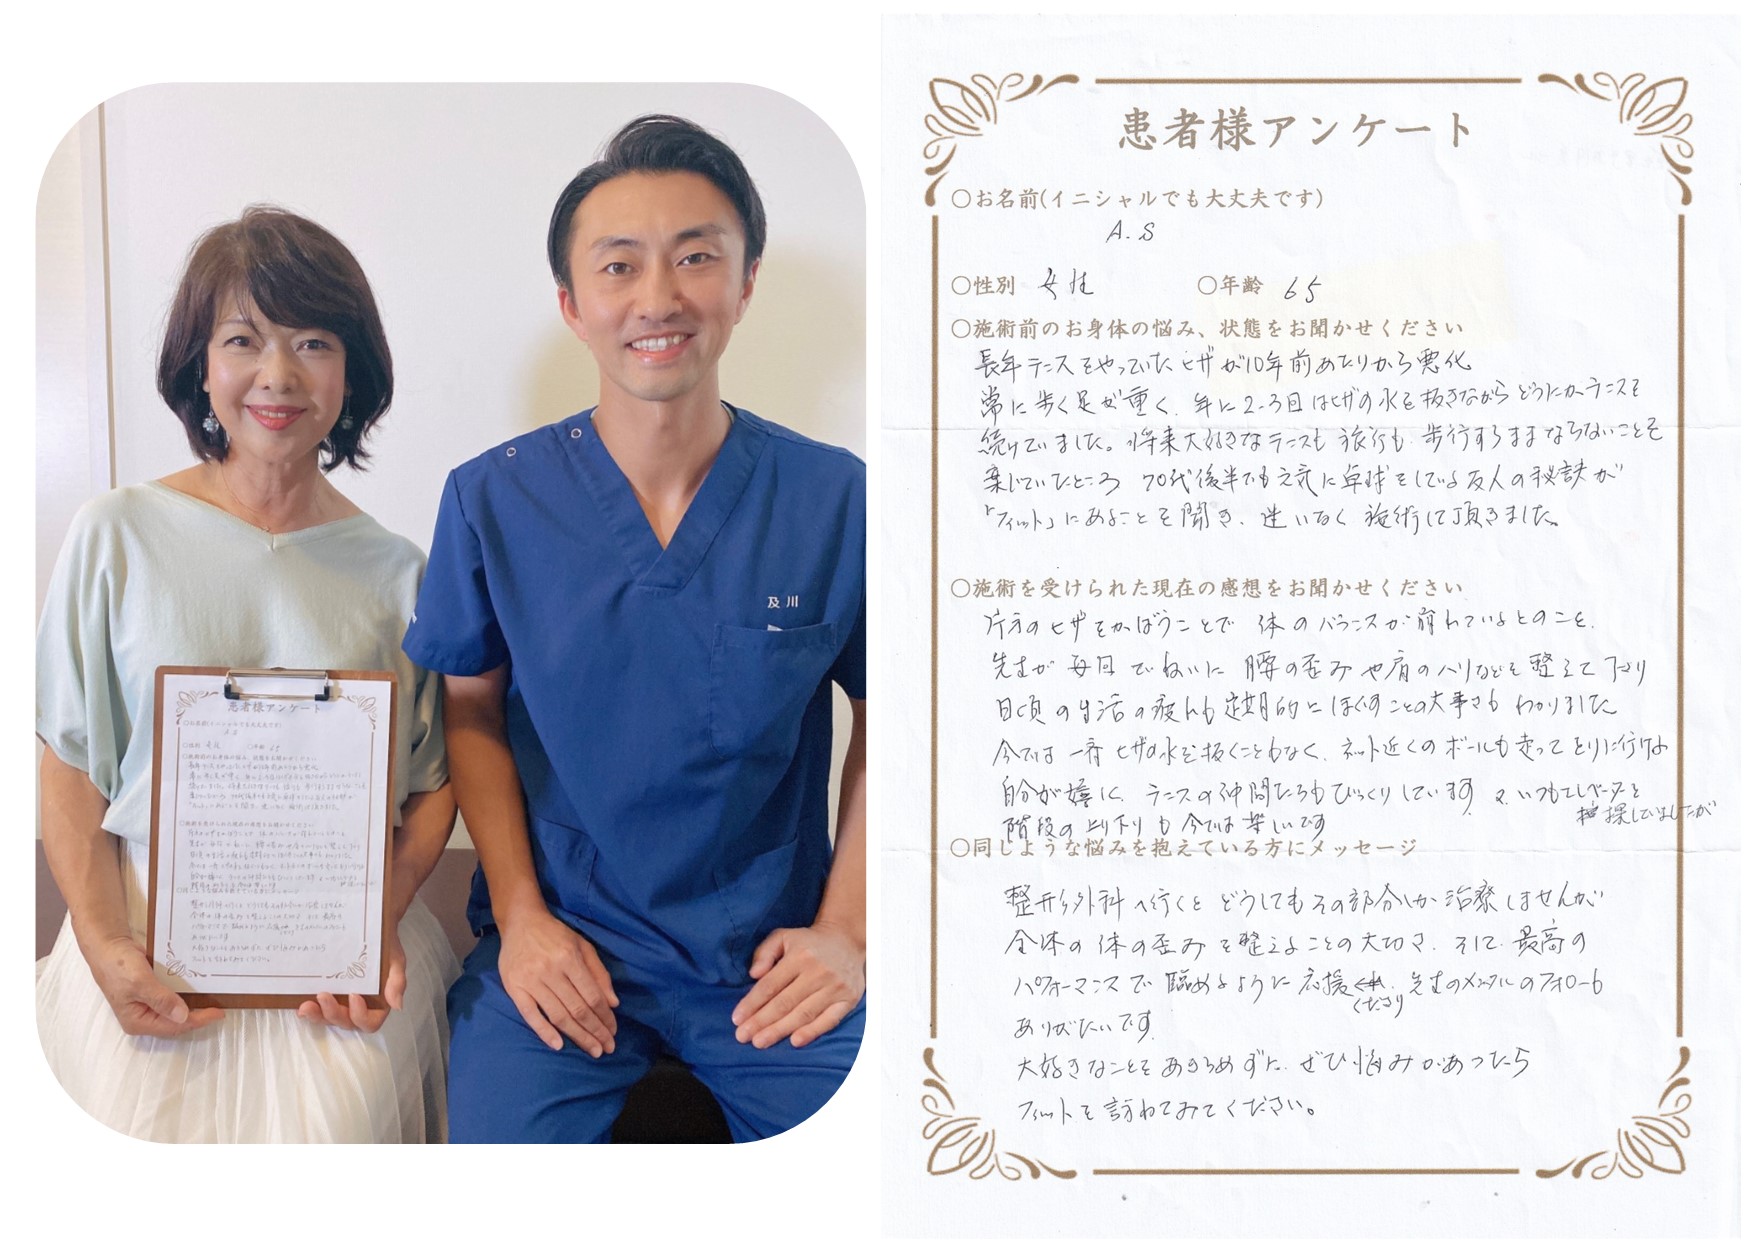 及川
患者様アンケート
○お名前(イニシャルでも大丈夫です)
A.S
○性別 女性 ○年齢 65
○施術前のお身体の悩み、状態をお聞かせください
長年テニスをやっていたヒザが10年前あたりから悪化
常に歩く足が重く、年に2.3回はヒザの水を抜きながらどうにかテニスを
続けていました。将来大好きなテニスも旅行も、歩行すらままならないことを
案じていたところ 70代後半でも元気に卓球をしている友人の秘訣が
「フィット」にあることを聞き、迷いなく施術して頂きました。
○施術を受けられた現在の感想をお聞かせください
片方のヒザをかばうことで 体のバランスが崩れているとのこと、
先生が毎回ていねいに 腰の歪みや肩のハリなどを整えて下さり
日頃の生活の疲れも定期的にほぐすことの大事さもわかりました
今では一番ヒザの水を抜くこともなく、ネット近くのボールも走ってとりに行けよ
自分が嬉しく、テニスの仲間たちもびっくりしています 又、いつもエレベーターを
探していましたが
階段の上り下りも今では楽しいです
○同じような悩みを抱えている方にメッセージ
整形外科へ行くと どうしてもその部分しか治療しませんが
全体の体の歪みを整えることの大切さ、そして最高の
パフォーマンスで臨めるように応援くださり、先生のメンタルのフォローも
ありがたいです。
大好きなことをあきらめずに、ぜひ悩みがあったら
フィットを訪ねてみてください。